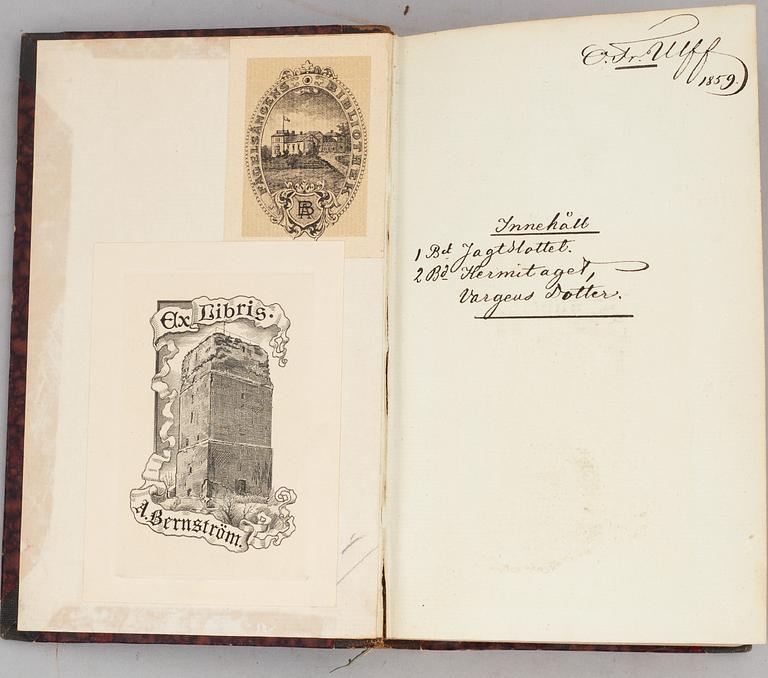 FAGELSÅNGENS BIBLIOTHEK
Ex Libris.
A. Bernström.
C. Fr. Ulff
1859.
Innehåll
1 Bd Jagtslottet.
2 Bd Hermitaget,
Vargens Dotter.